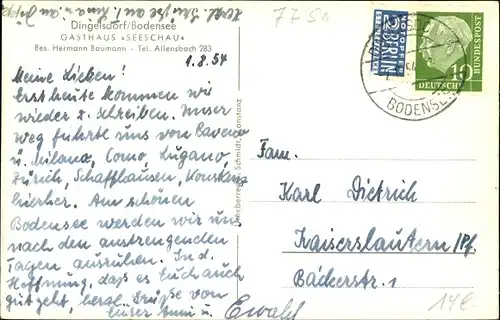 Dingelsdorf/Bodensee
GASTHAUS »SEESCHAU«
Bes. Hermann Baumann - Tel. Allensbach 283
1.8.54
Meine Lieben!
Erst heute kommen wir
wieder z. schreiben. Unser
Weg führte uns von Baveno
ü. Milano, Como, Lugano,
Zürich, Schaffhausen, Konstanz
hierher. Am schönen
Bodensee werden wir uns
nach den anstrengenden
Tagen ausruhen. In d.
Hoffnung, daß es Euch auch
gut geht, herzl. Grüße von
Eurer Anni u. Ewald
Schmidt, Konstanz
7750
NOTOPFER
2
BERLIN
10
DEUTSCHE
BUNDESPOST
BODENSEE
Fam.
Karl Dietrich
Kaiserslautern Pf.
Bäckerstr. 1
14€